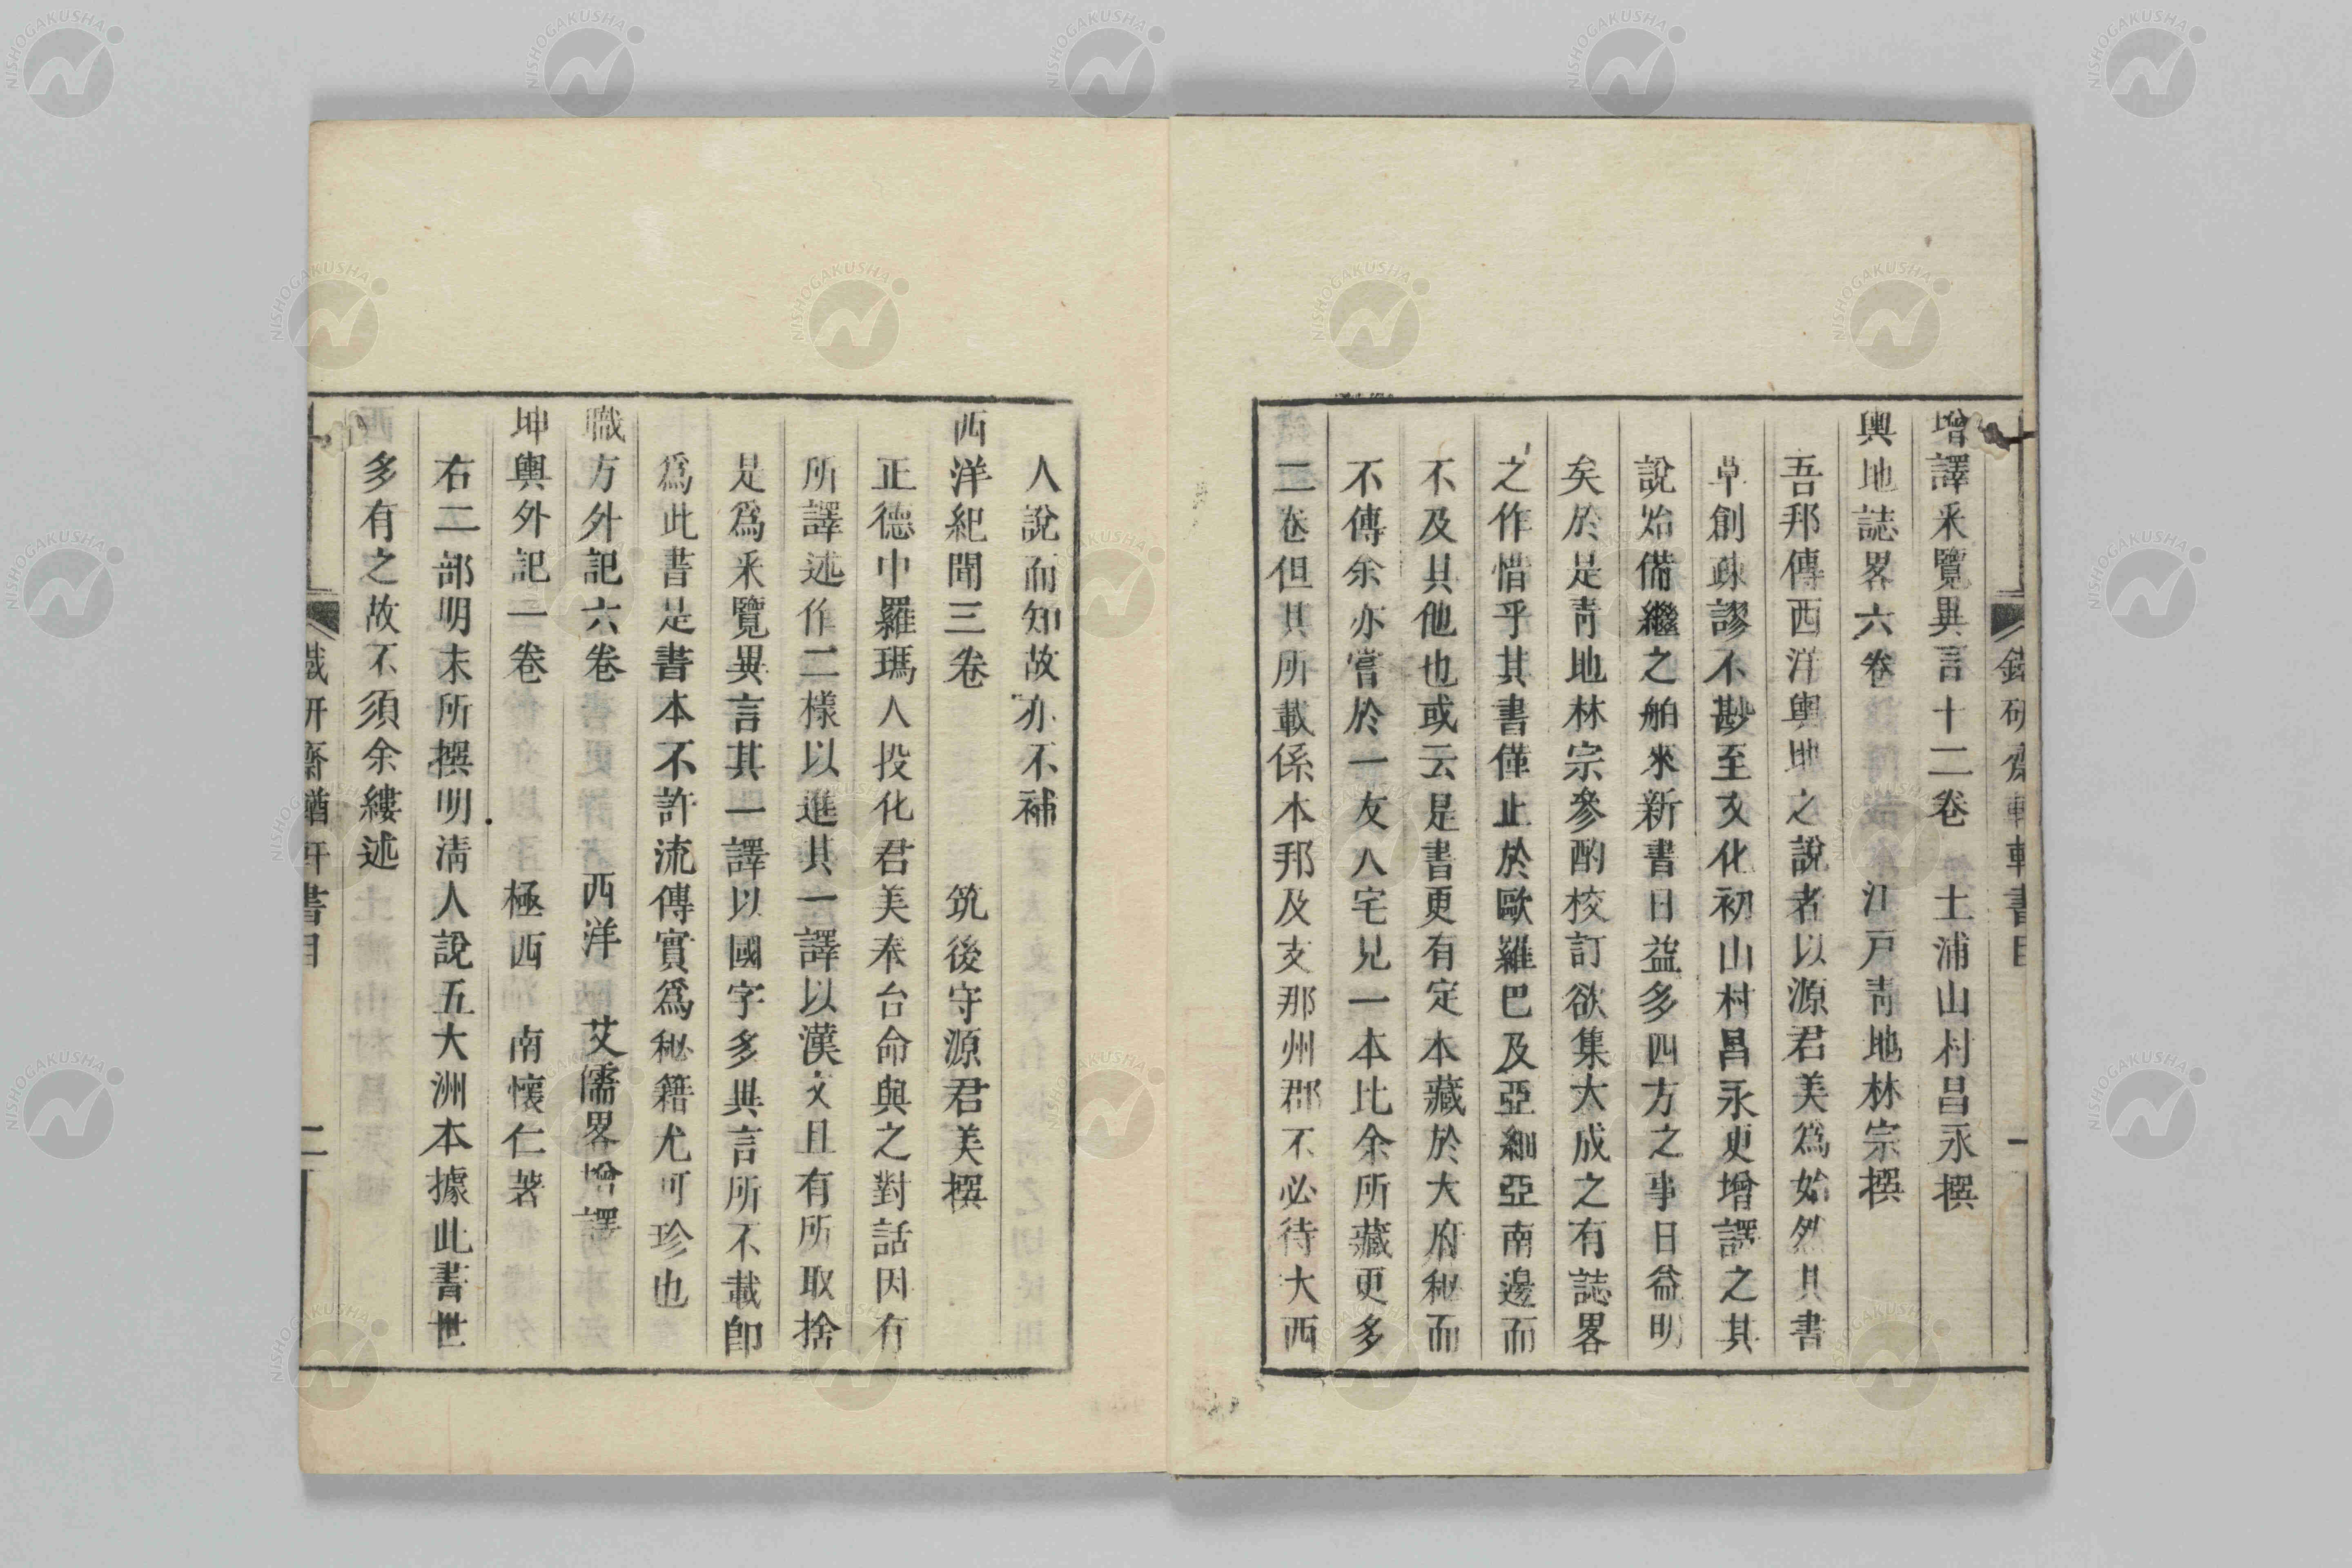 增譯釆覽異言十二卷 土浦山村昌永撰
輿地誌畧六卷 江戸青地林宗撰
吾邦傳西洋輿地之說者以源君美爲始然其書
草創疎謬不尠至文化初山村昌永更增譯之其
說始備繼之舶來新書日益多四方之事日益明
矣於是青地林宗參酌校訂欲集大成之有誌畧
之作惜乎其書僅止於歐羅巴及亞細亞南邊而
不及其他也或云是書更有定本藏於大府秘而
不傳余亦嘗於一友人宅見一本比余所藏更多
二卷但其所載係本邦及支那州郡不必待大西
人說而知故亦不補
西洋紀聞三卷 筑後守源君美撰
正德中羅瑪人投化君美奉台命與之對話因有
所譯述作二樣以進其一譯以漢文且有所取捨
是爲釆覽異言其一譯以國字多異言所不載卽
爲此書是書本不許流傳實爲秘籍尤可珍也
職方外記六卷 西洋 艾儒畧增譯
坤輿外記一卷 極西 南懷仁著
右二部明末所撰明淸人說五大洲本據此書世
多有之故不須余縷述
書目
二
NISHOGAKUSHA